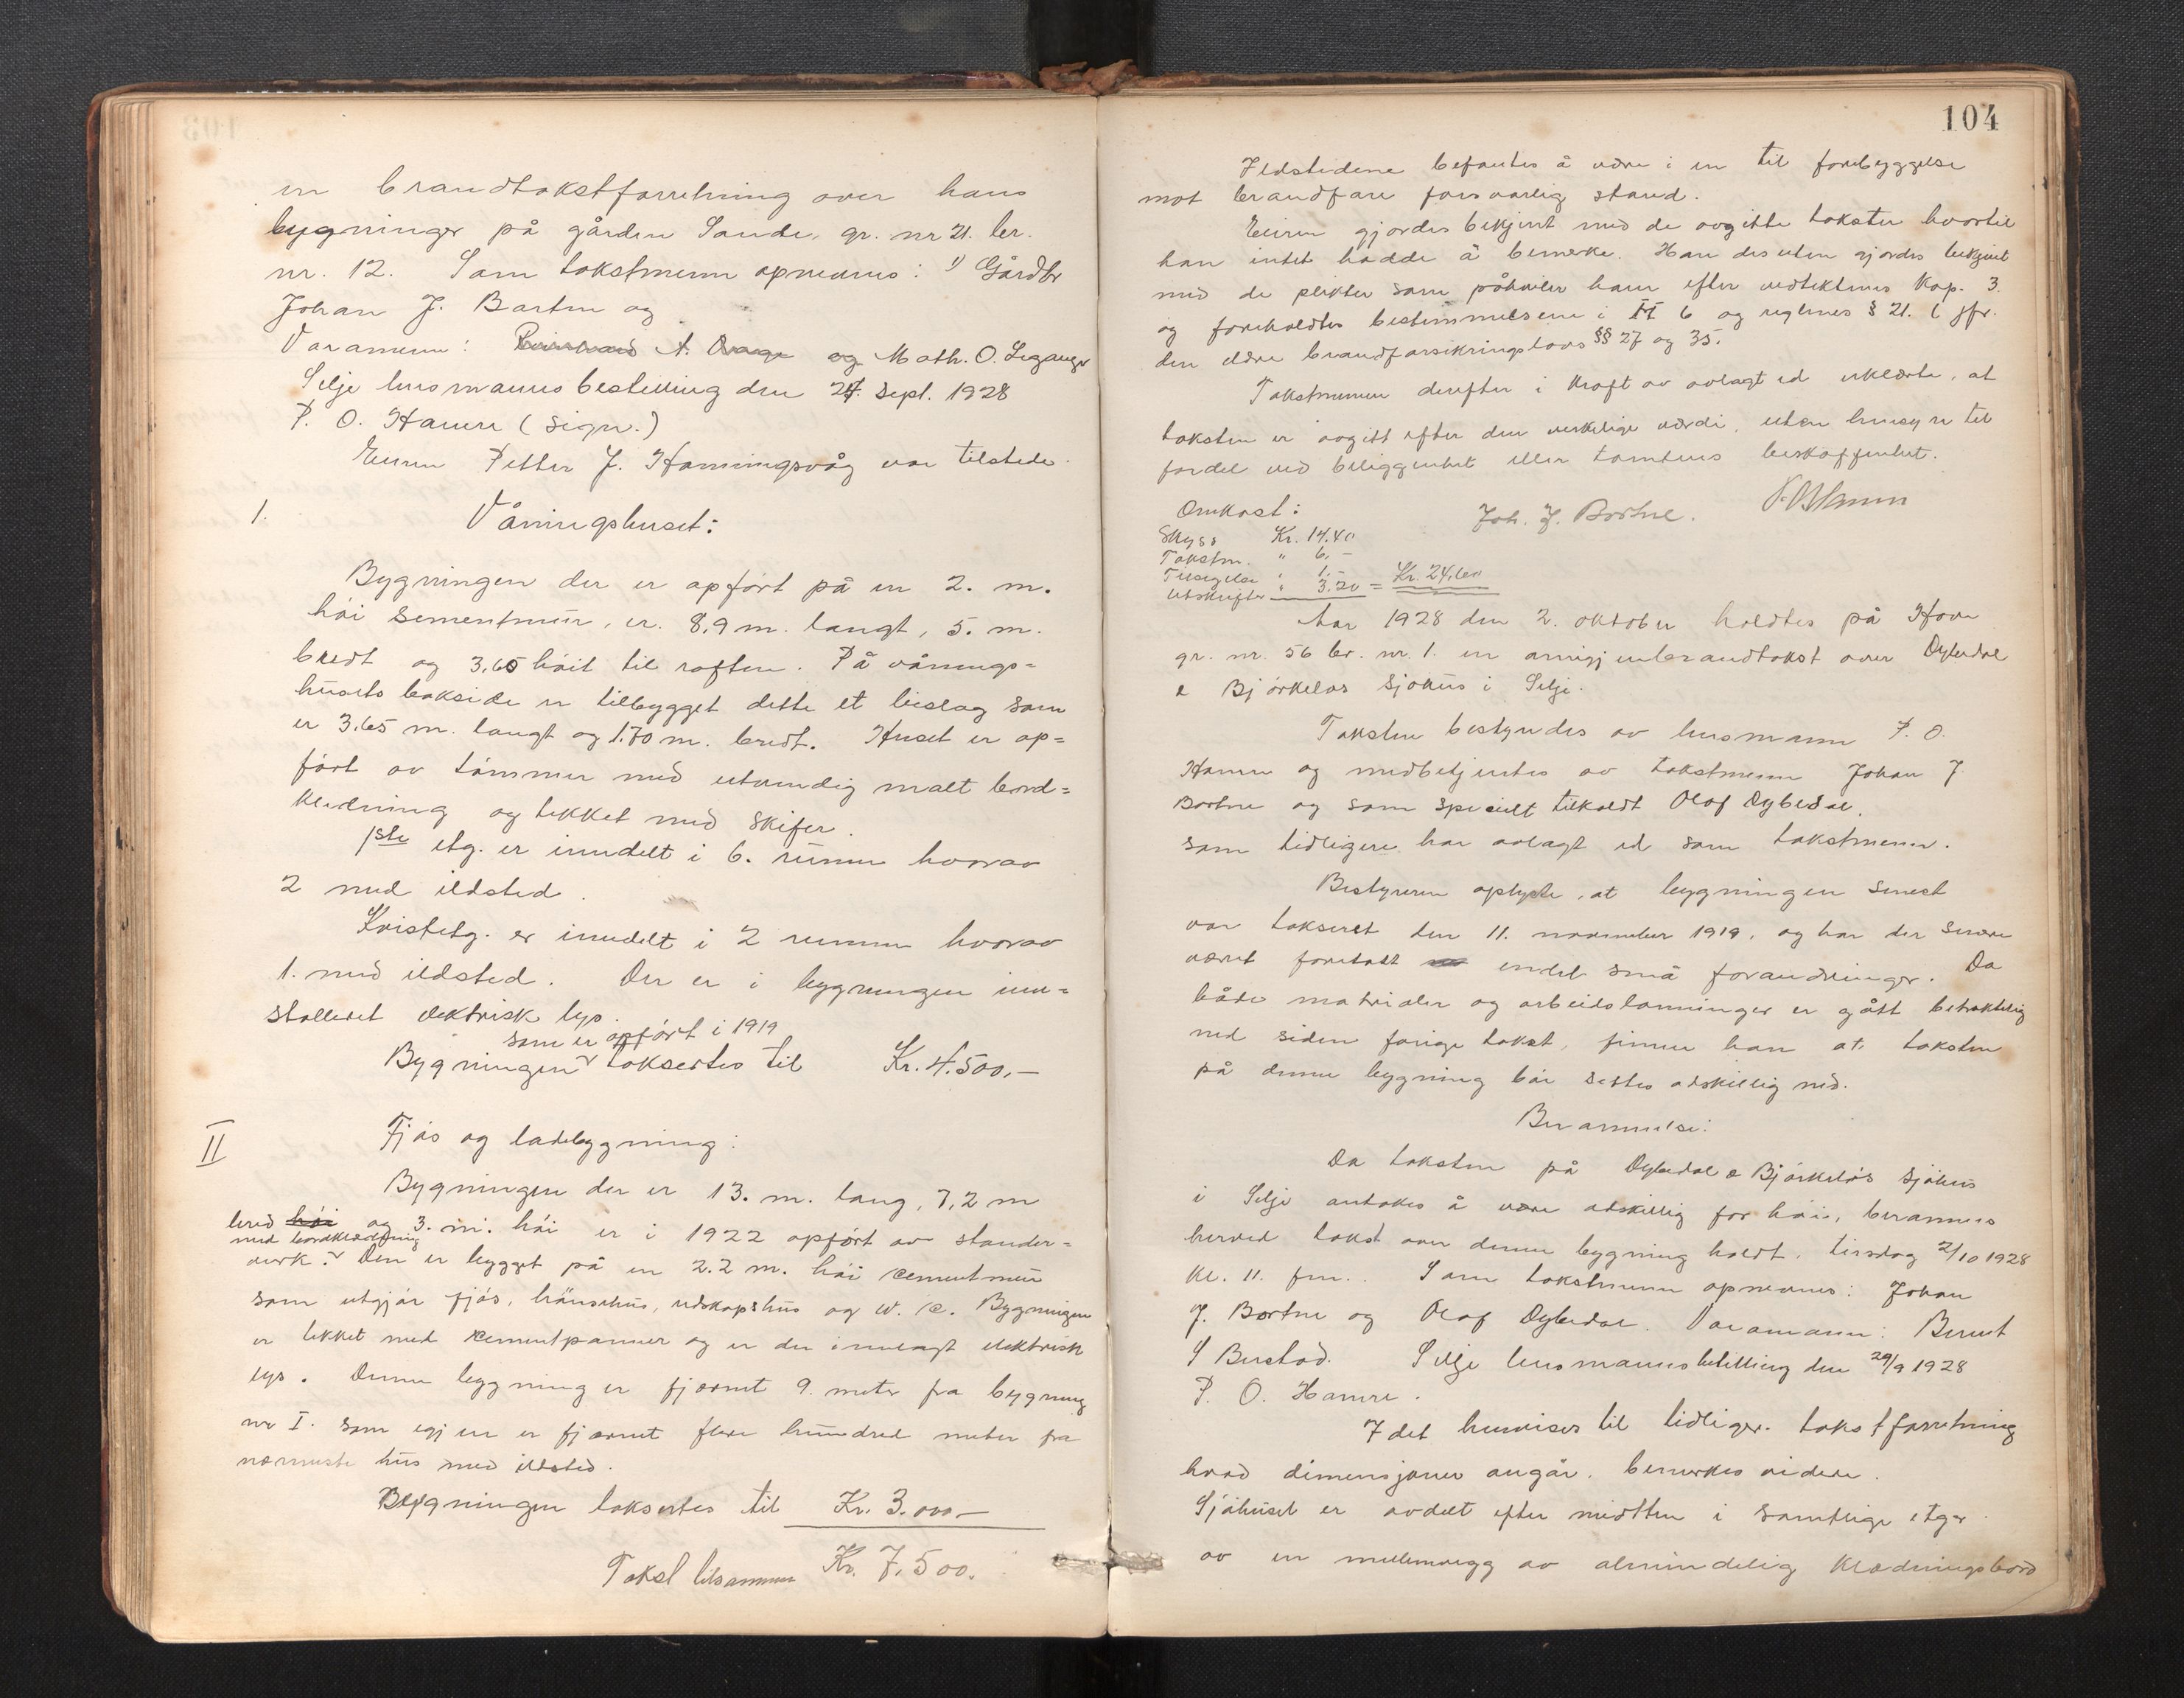 en brandtakstforretning over hans
bygninger på gården Sande, gr. nr 21. br.
nr. 12. Som takstmenn opnevnes: 1) Gårdbr
Johan J. Bortne og
Varamenn: A. Drage og Math. O. Leganger
Selje lensmannsbestilling den 24. sept. 1928
P. O. Hamre (sign.)
Eieren Petter J. Hamningsvåg var tilstede.
1. Våningshuset:
Bygningen der er opført på en 2. m.
høi sementmur, er. 8,9 m. langt, 5. m.
bredt og 3,65 høit til raften. På vånings=
husets bakside er tilbygget dette et bislag som
er 3.65 m. langt og 1.70 m. bredt. Huset er op=
ført av tømmer med utvendig malt bord=
kledning og tekket med skifer.
1ste etg. er inndelt i 6. rumm hvorav
2 med ildsted.
Kvistetg. er inndelt i 2 rumm hvorav
1. med ildsted. Der er i bygningen inn=
stalleret elektrisk lys.
som er opført i 1919
Bygningen taksertes til Kr. 4.500,-
II Fjøs og ladebygning:
Bygningen der er 13. m. lang, 7,2 m
bred høi og 3. m. høi er i 1922 opført av stender=
med bordklædning
verk. Den er bygget på en 2.2 m. høi cementmur
som utgjør fjøs, hönsehus, redskapshus og W. C. Bygningen
er tekket med cementpanner og er der innlagt elektrisk
lys. Denne bygning er fjernet 9. meter fra bygning
nr I. som igjen er fjernet flere hundred meter fra
nærmeste hus med ildsted.
Bygningen taksertes til Kr. 3.000-
Takst tilsammen Kr. 7.500.
104
Ildstedene befantes å være i en til forebyggelse
mot brandfare forsvarlig stand.
Eieren gjordes bekjent med de avgitte takster hvortil
han intet hadde å bemerke. Han desuten gjordes bekjent
med de plikter som påhviler ham efter vedtektenes Kap. 3.
og foreholdtes bestemmelsene i 6 og reglenes § 21. (jfr.
den eldre brandforsikringslovs §§ 27 og 35.
Takstmennene derefter i kraft av avlagt ed erklærte, at
taksten er avgitt efter den virkelige verdi, uten hensyn til
fordel ved beliggenhet eller tomtens beskaffenhet.
Omkost: Joh. J. Bortne. P. O. Hamre
Skyss Kr. 14.40
Takstm. " 6,-
Tilsigelse " 1.-
Utskrifter " 3.20 = Kr. 24,60
År 1928 den 2. oktober holdtes på Hove
gr. nr. 56 br. nr. 1. en omigjenbrandtakst over Dybedal
& Bjørkelos sjøhus i Selje.
Taksten bestyredes av lensmann P. O.
Hamre og medbetjentes av takstmenn Johan J
Bortne og som specielt tilkaldt Olaf Dybedal,
som tidligere har avlagt ed som takstmenn.
Bestyreren oplyste, at bygningen senest
var taksert den 11. november 1919, og har der senere
været foretatt endel små forandringer. Da
både matrialer og arbeidslønninger er gått betraktelig
ned siden forrige takst, finner han at taksten
på denne bygning bør settes adskillig ned.
Berammelse:
Da taksten på Dybedal & Bjørkeløs sjøhus
i Selje antakes å være adskillig for høi, berammes
herved takst over denne bygning holdt. tirsdag 2/10 1928
kl. 11. fm. Som takstmenn opnevnes: Johan
J. Bortne og Olaf Dybedal. Varamann: Bernt
S Berstad. Selje lensmannsbestilling den 29/9 1928
P. O. Hamre.
Idet henvises til tidliger. takstforretning
hvad dimensjoner angår, bemerkes videre.
Sjøhuset er avdelt efter midten i samtlige etger
av en mellemvegg av almindelig klædningsbord